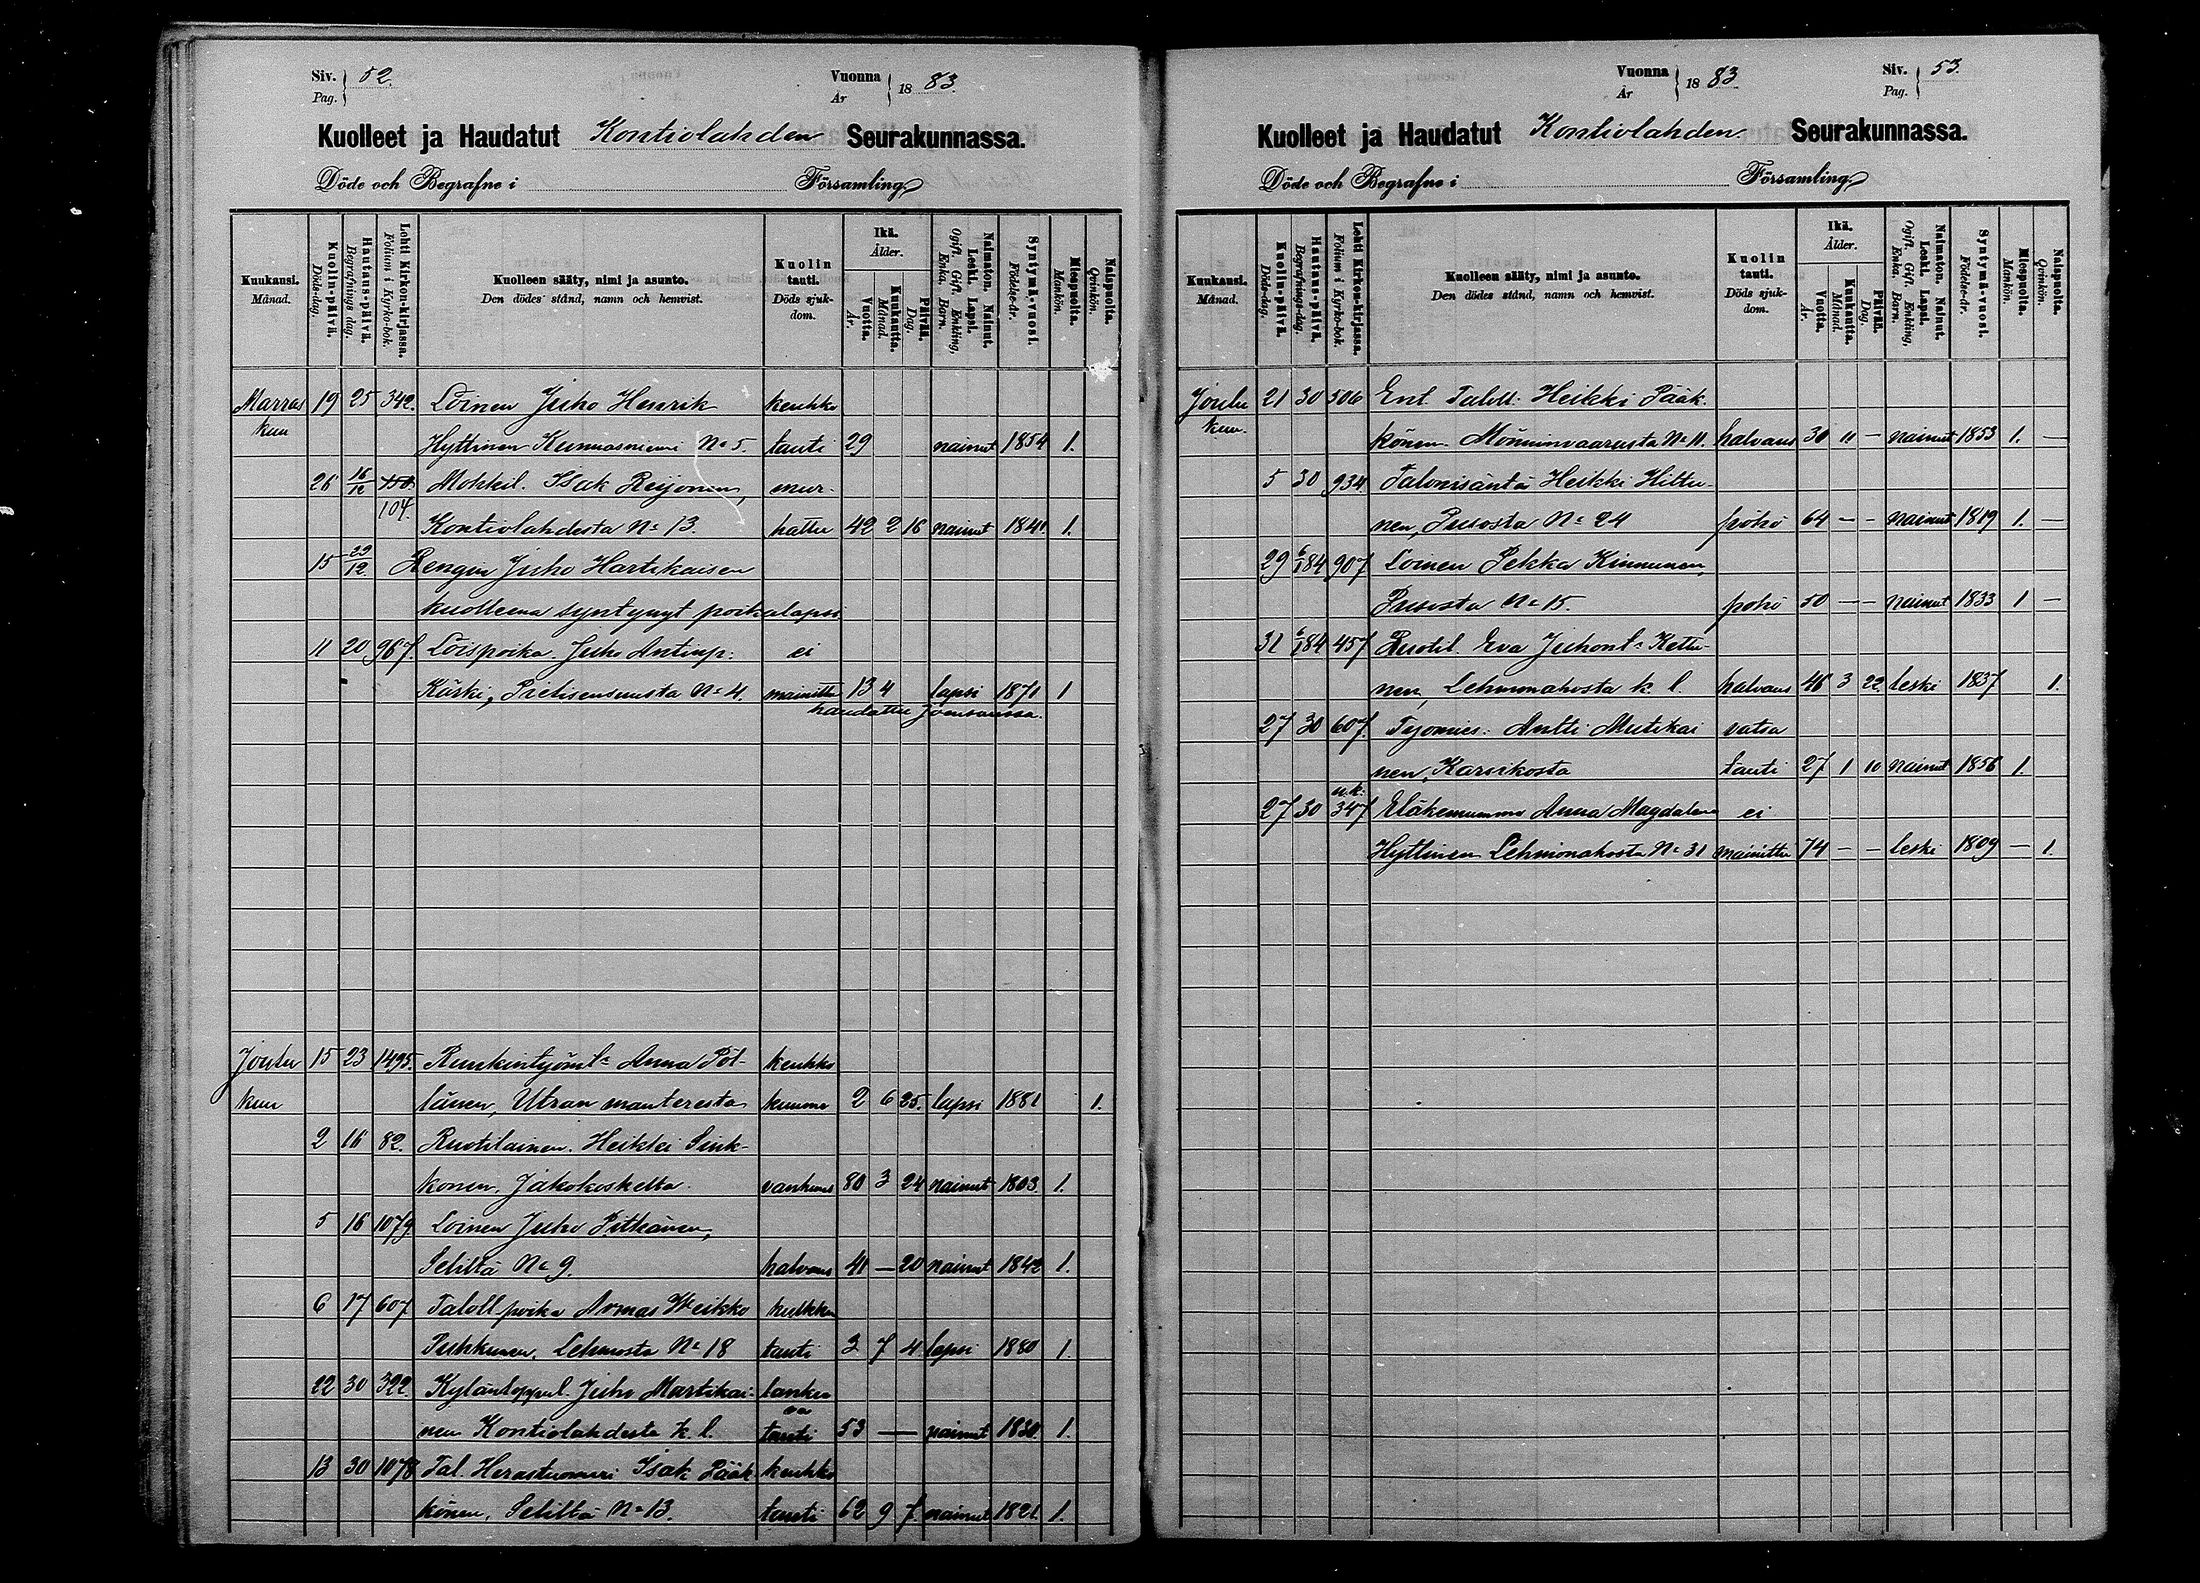 Siv. 52. Vuonna 1883.
Pag. År
Kuolleet ja Haudatut Kontiolahden Seurakunnassa.
Döde och Begrafne i Församling.
Kuukausi. Månad.
Kuolin-päivä. Döds-dag.
Hautaus-päivä. Begrafnings dag.
Lehti Kirkon-kirjassa. Folium i Kyrko-bok.
Kuolleen sääty, nimi ja asunto.
Den dödes stånd, namn och hemvist.
Kuolin tauti. Döds sjukdom.
Ikä. Ålder.
Vuotta. År.
Kuukautta. Månad.
Päivää. Dag.
Naimaton. Nainut. Leski. Lapsi.
Ogift. Gift. Enkling, Enka. Barn.
Syntymä-vuosi. Födelse-år.
Miespuolta. Mankön.
Naispuolta. Qvinkön.
Marras 19 25 342. Loinen Juho Henrik keuhko
kuu Hyttinen Kunnasniemi No 5. tauti 29 nainut 1854 1.
26 16/12 150 Mökkil. Isak Reijonen,
104. Kontiolahdesta No 13. 42 2 16 nainut 1841. 1.
15 29/12. Rengin Juho Hartikaisen
kuolleena syntynyt poikalapsi
11 20 967. Loispoika Juho Antinp: ei
Kärki, No 4. mainittu 13 4 lapsi 1870 1
haudattu Joensuussa.
Joulu 15 23 1495. Anna Pöl- keuhko
kuu länen, Utran kuume 2 6 25. lapsi 1881 1.
2 16 82. Ruotilainen. Heikki Sink-
konen, Jakokoskelta. vanhuus 80 3 24 nainut 1803. 1.
5 16 1079 Loinen Juho Pitkänen,
Seliltä No 9. halvaus 41 — 20 nainut 1842 1.
6 17 607 Taloll poika Armas Weikko
Puhkunen. Lehmosta No 18 tauti 3 7 4 lapsi 1880 1.
22 30 322. Juho Martikai-
nen Kontiolahdesta k. l. tauti 53 — nainut 1830. 1.
13 30 1078 Tal. Isak Pääk keuhko
könen, Seliltä No 13. tauti 62 9 7. nainut 1821. 1.
Vuonna 1883. Siv. 53.
År Pag.
Kuolleet ja Haudatut Kontiolahden Seurakunnassa.
Döde och Begrafne i Församling.
Kuukausi. Månad.
Kuolin-päivä. Döds-dag.
Hautaus-päivä. Begrafnings-dag.
Lehti Kirkon-kirjassa. Folium i Kyrko-bok.
Kuolleen sääty, nimi ja asunto.
Den dödes stånd, namn och hemvist.
Kuolin tauti. Döds sjuk-dom.
Ikä. Ålder.
Vuotta. År.
Kuukautta. Månad.
Päivää. Dag.
Naimaton. Nainut. Leski. Lapsi.
Ogift. Gift. Enkling, Enka. Barn.
Syntymä-vuosi. Födelse-år.
Miespuolta. Mankön.
Naispuolta. Qvinkön.
Joulu 21 30 506 Ent Taloll: Heikki Pääk-
kuu. könen Mönninvaarasta No 11. halvaus 30 11 — nainut 1853 1. —
5 30 934. Talonisäntä Heikki Hiltu-
nen, Pusosta No 24 pöhö 64 — — nainut 1819 1. —
29 6/1 84 907 Loinen Pekka Kinnunen,
Pusosta No 15. pöhö 50 — — nainut 1833 1 —
31 6/1 84 457 Ruotil. Eva Juhont: Kettu-
nen, Lehmonahosta k. l. halvaus 46 3 22. leski 1837 1.
27 30 607. Työmies: Antti Mutikai vatsa
nen, Karsikosta tauti 27 1 10 nainut 1856 1.
u.k:
27 30 347 Eläkemummo Anna Magdalena ei
Hyttinen Lehmonahosta No 31 mainittu 74 — — leski 1809 — 1.